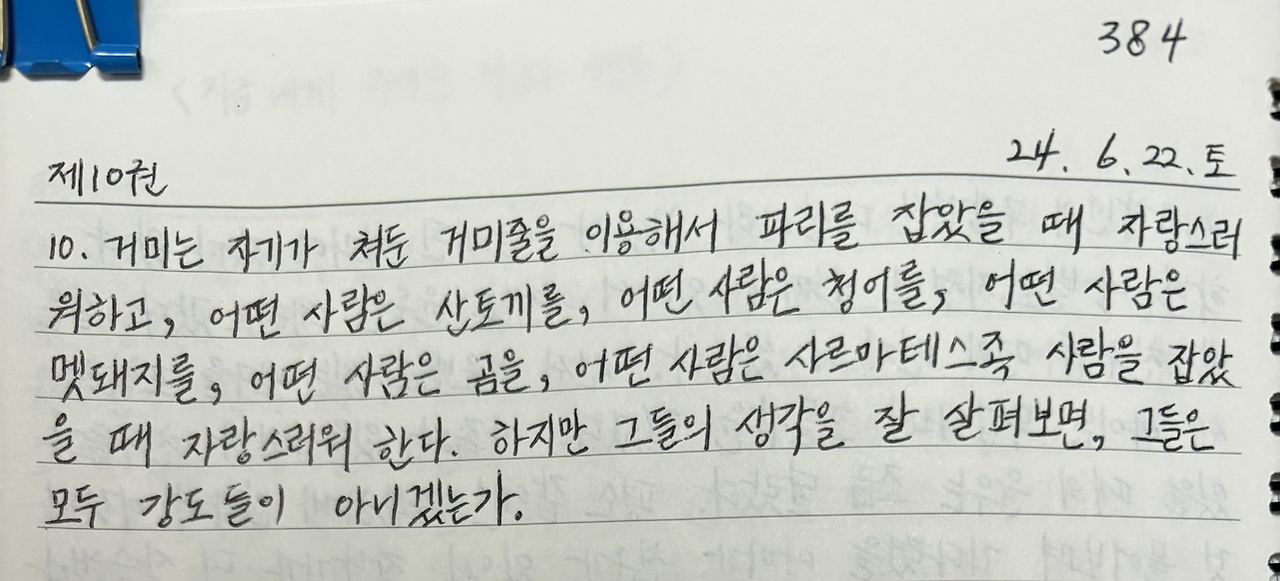 384
24. 6. 22. 토
제10권
10. 거미는 자기가 쳐둔 거미줄을 이용해서 파리를 잡았을 때 자랑스러
워하고, 어떤 사람은 산토끼를, 어떤 사람은 청어를, 어떤 사람은
멧돼지를, 어떤 사람은 곰을, 어떤 사람은 사르마테스족 사람을 잡았
을 때 자랑스러워 한다. 하지만 그들의 생각을 잘 살펴보면, 그들은
모두 강도들이 아니겠는가.